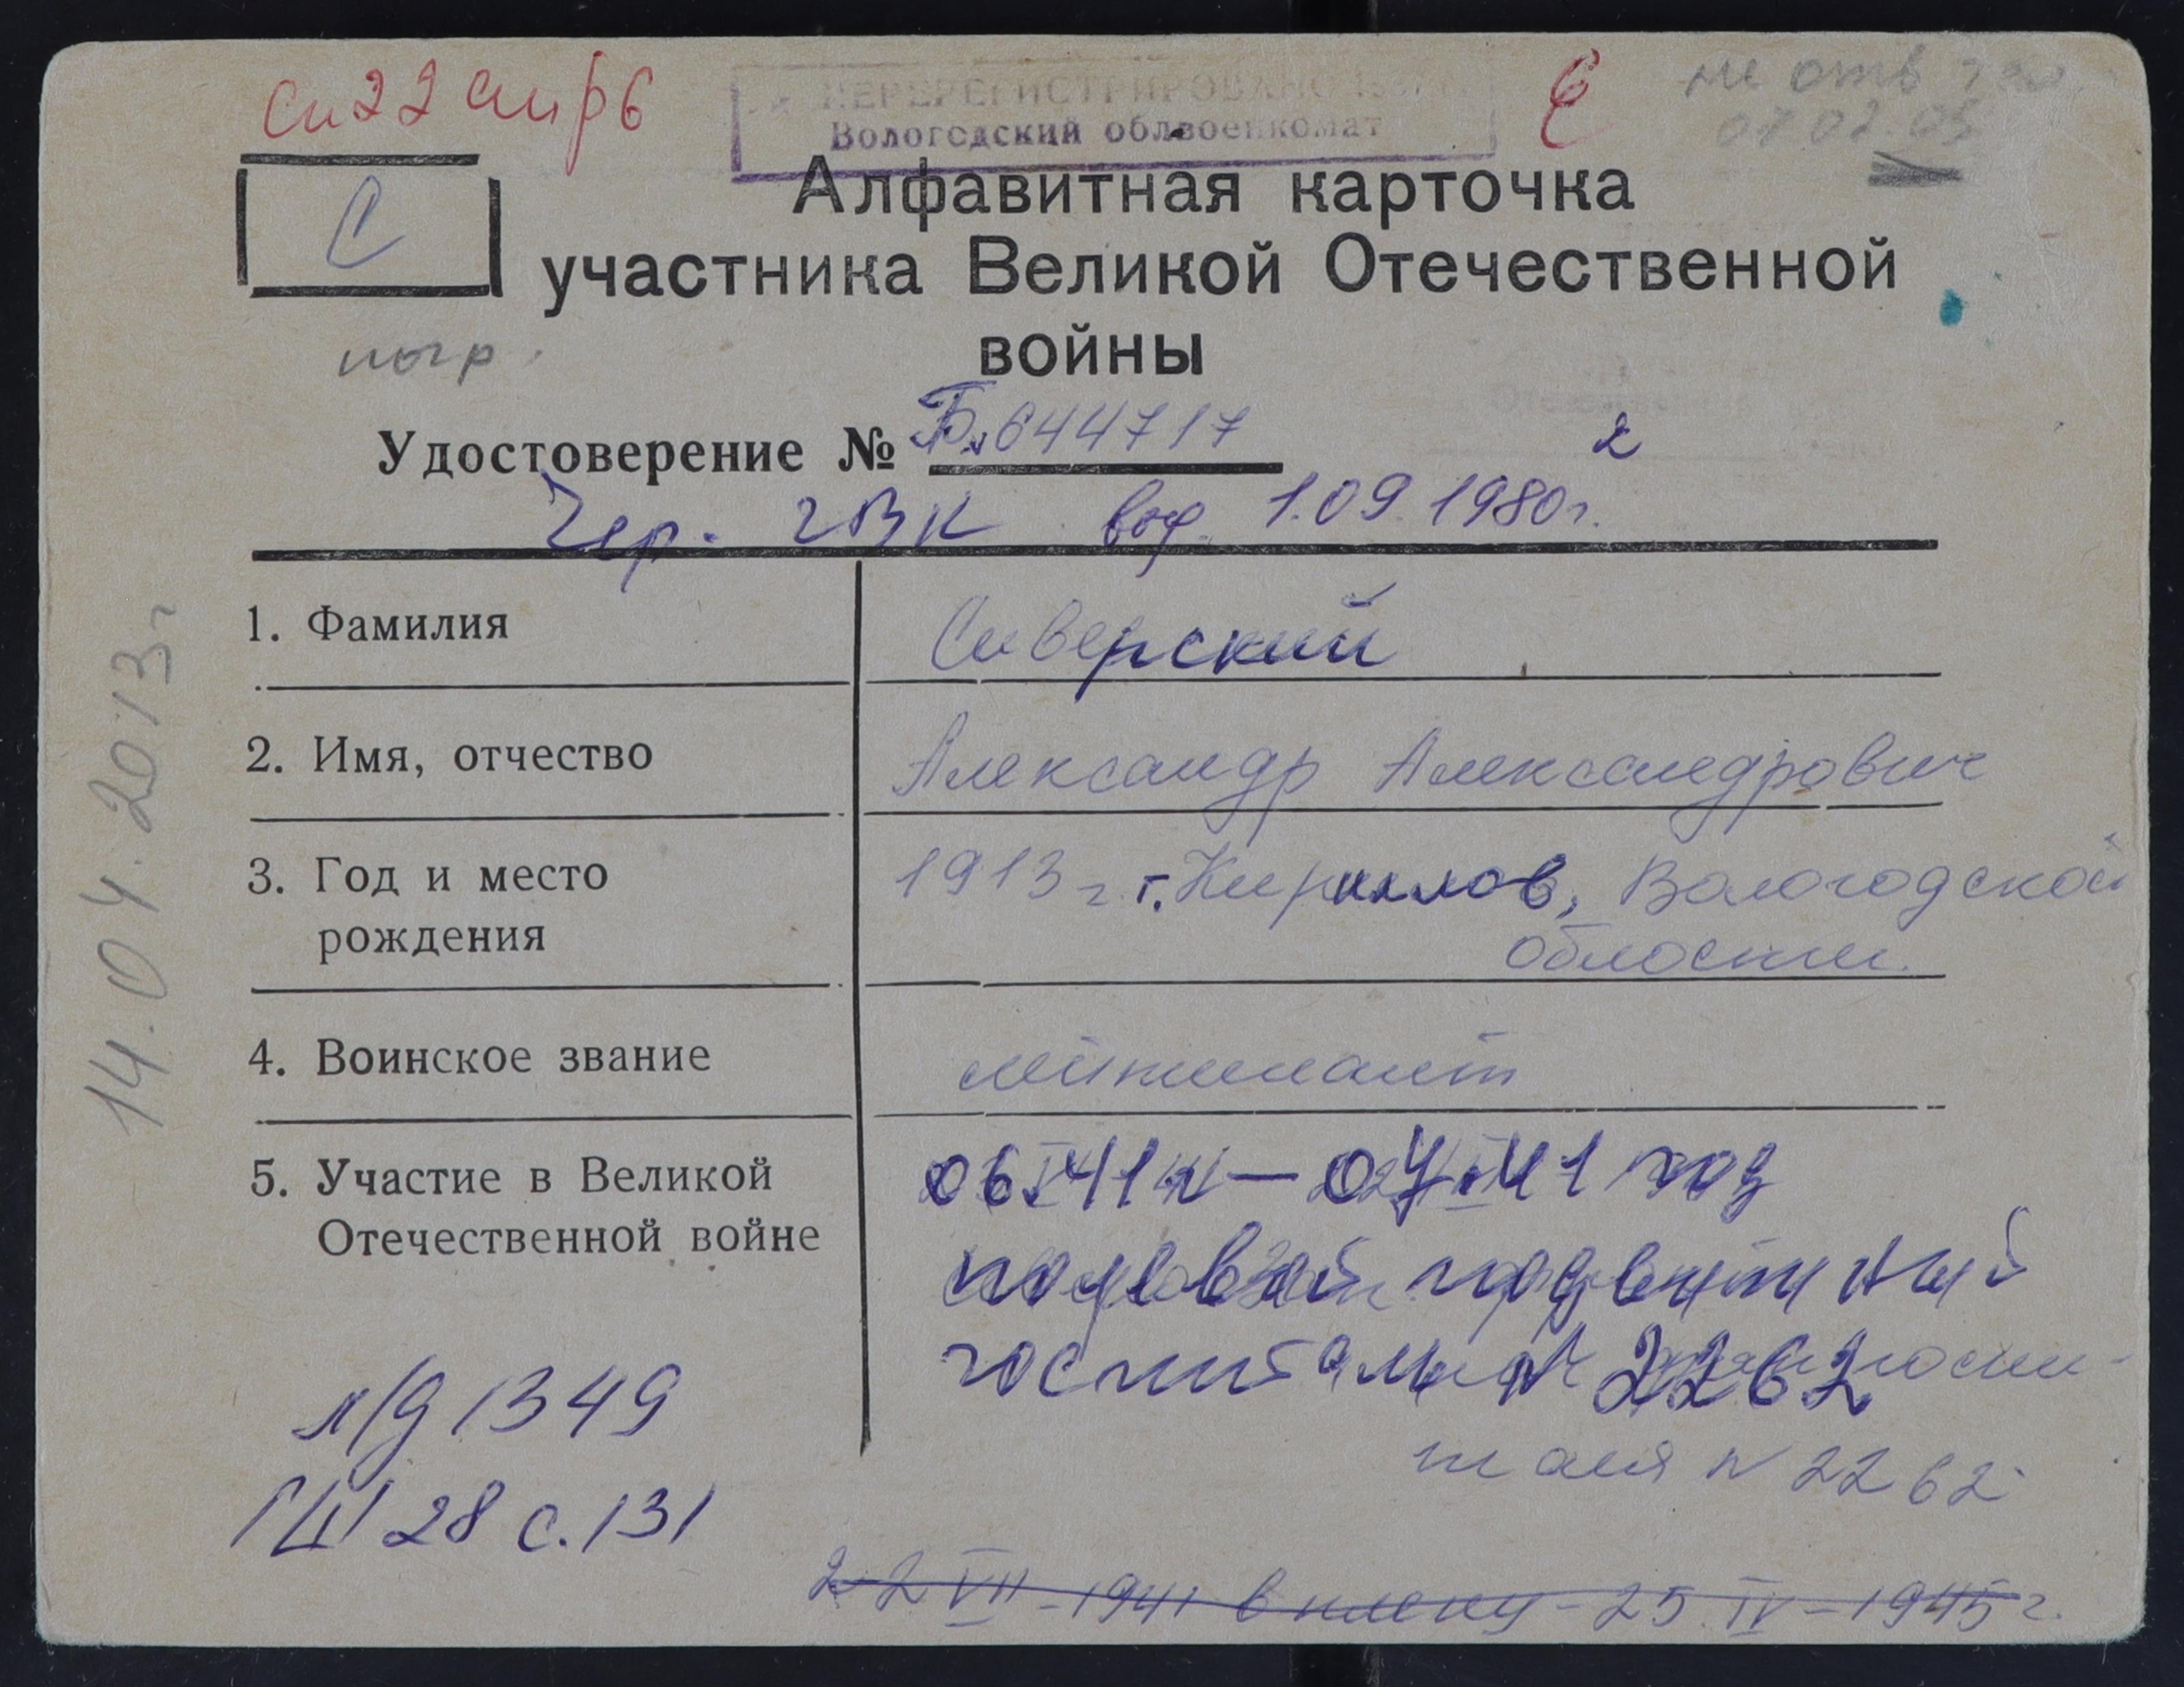 Сн 22 апр 6
ПЕРЕРЕГИСТРИРОВАНО
Вологодский облвоенкомат
не отв
07 02 05
С
Алфавитная карточка
участника Великой Отечественной
войны
Удостоверение № Б. 644717
2
Чер. ГВК выд. 1.09.1980г.
14.04.2013г
1. Фамилия Сиверский
2. Имя, отчество Александр Александрович
3. Год и место
рождения
1913 г. г. Кириллов, Вологодской
области.
4. Воинское звание лейтенант
5. Участие в Великой
Отечественной войне
06.41 – 07.41 год
полевой подвижный
госпиталь № 2262 госпи-
таля № 2262
л/д 1349
ГШ 28 с. 131
22 VII – 1941 в плену – 25. IV – 1945 г.